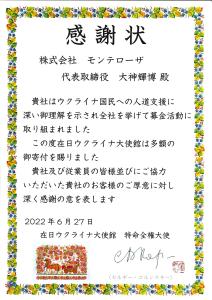 感謝状
株式会社 モンテローザ
代表取締役 大神輝博 殿
貴社はウクライナ国民への人道支援に
深い御理解を示され全社を挙げて募金活動に
取り組まれました
この度在日ウクライナ大使館は多額の
御寄付を賜りました
貴社及び従業員の皆様並びにご協力
いただいた貴社のお客様のご厚意に対し
深く感謝の意を表します
2022年6月27日
在日ウクライナ大使館 特命全権大使